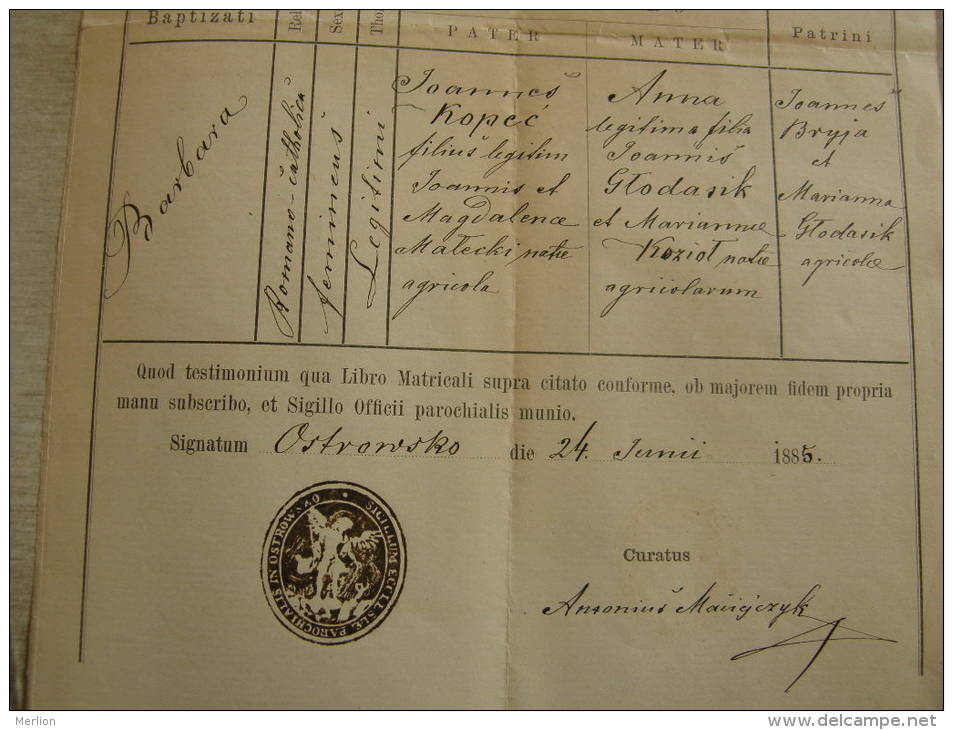 Baptizati
Rel
Sex
Tho
PATER
MATER
Patrini
Barbara
Romano-catholica
femineus
Legitimi
Joannes
Kopeć
filius legitim
Joannis et
Magdalenæ
Małecki natæ
agricola
Anna
legitima filia
Joannis
Głodasik
et Mariannæ
Kozioł natæ
agricolarum
Joannes
Bryja
et
Marianna
Głodasik
agricolæ
Quod testimonium qua Libro Matricali supra citato conforme, ob majorem fidem propria
manu subscribo, et Sigillo Officii parochialis munio.
Signatum Ostrowsko die 24. Junii 1885.
SIGILLUM ECCLESIÆ PAROCHIALIS IN OSTROWSKO
Curatus
Antonius
Merlion
www.delcampe.net